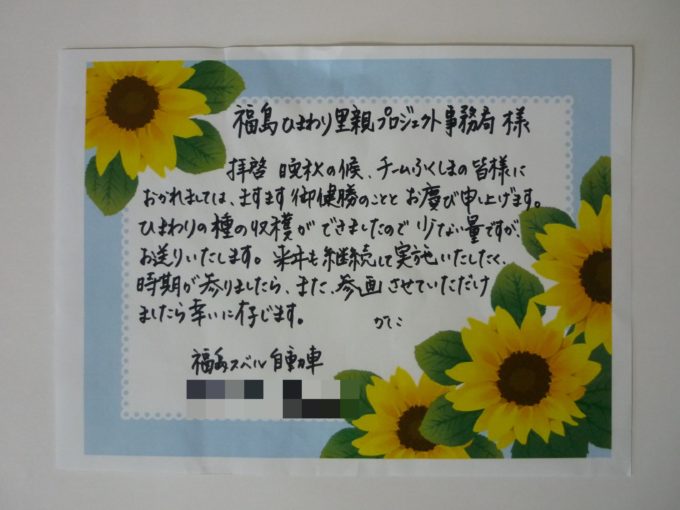 福島ひまわり里親プロジェクト事務局 様
拝啓 晩秋の候、チームふくしまの皆様に
おかれましては、ますます御健勝のこととお慶び申し上げます。
ひまわりの種の収穫ができましたので少ない量ですが、
お送りいたします。来年も継続して実施いたしたく、
時期が参りましたら、また、参画させていただけ
ましたら幸いに存じます。
福島スバル自動車